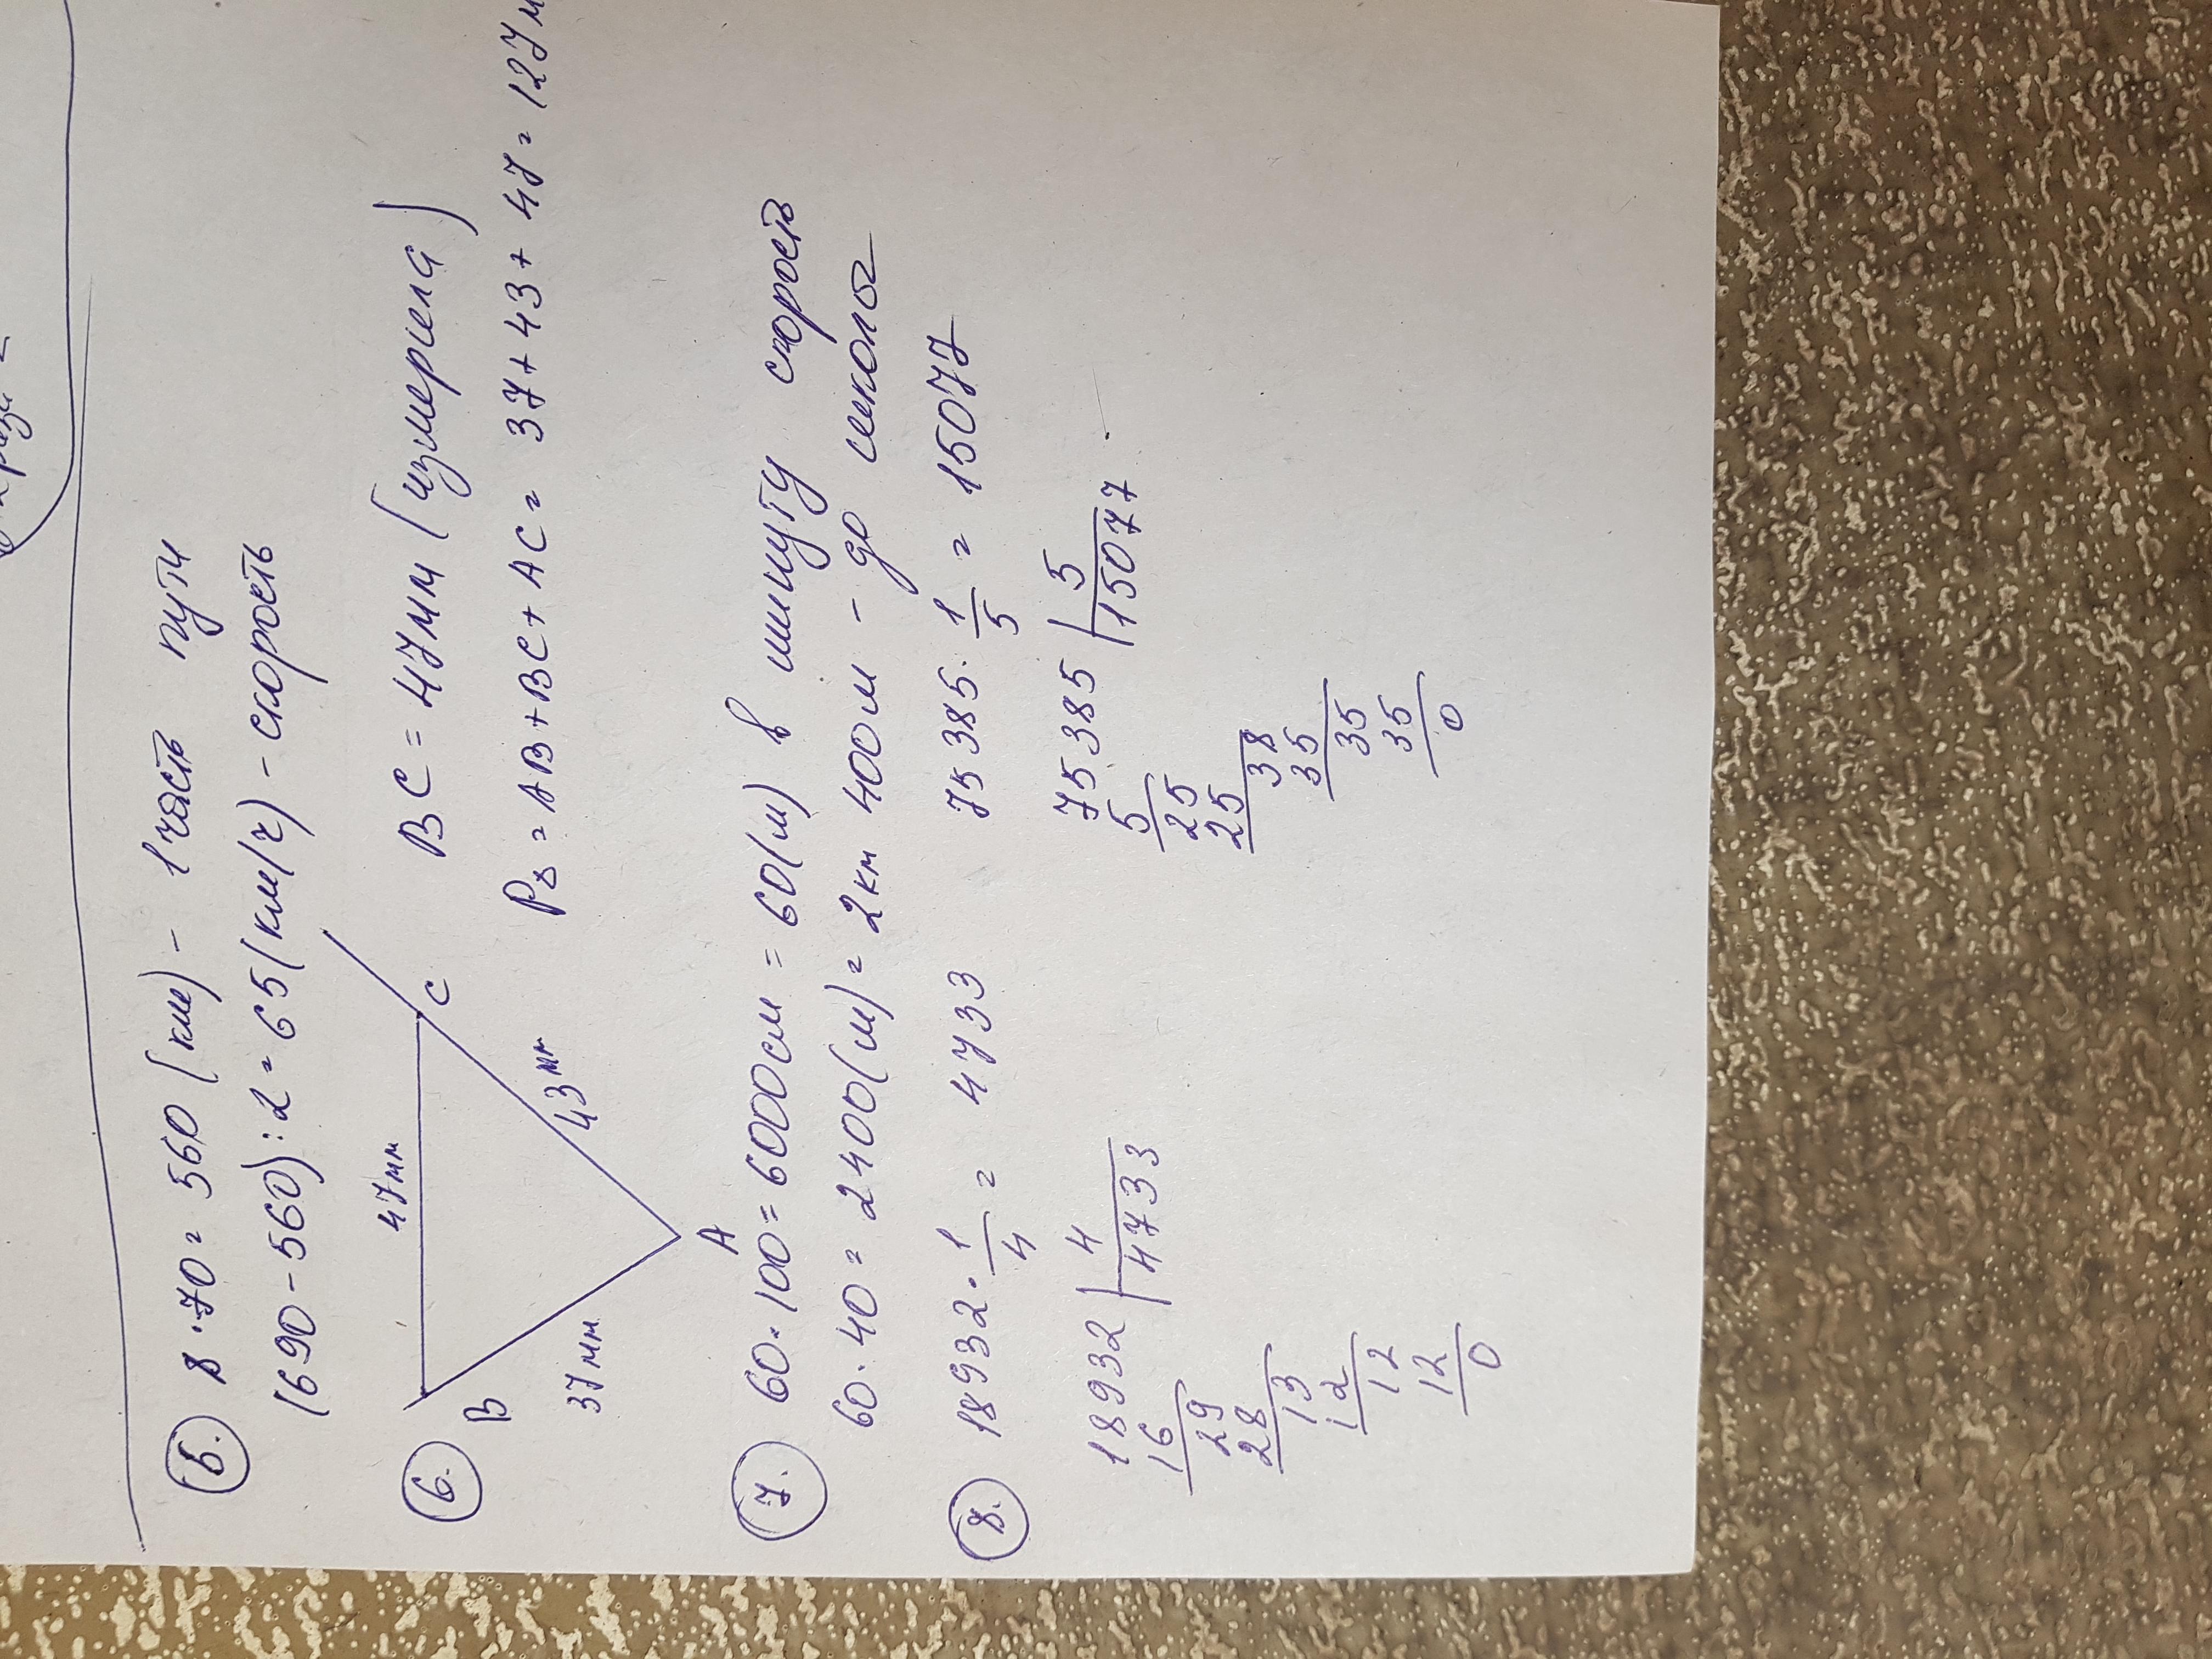 5. 8 · 70 = 560 (км) - 1 часть пути
(690 - 560) : 2 = 65 (км/ч) - скорость
6. BC = 47 мм (измерила)
47 мм
C
P▵ = AB + BC + AC = 37 + 43 + 47 = 127 м
B
43 мм
37 мм
A
7. 60 · 100 = 6000 см = 60 (м) в минуту скорость
60 · 40 = 2400 (м) = 2 км 400 м - до школы
8. 18932 · 1/4 = 4733 75385 · 1/5 = 15077
18932 | 4 75385 | 5
16 4733 5 15077
29 25
28 25
13 38
12 35
12 35
12 35
0 0